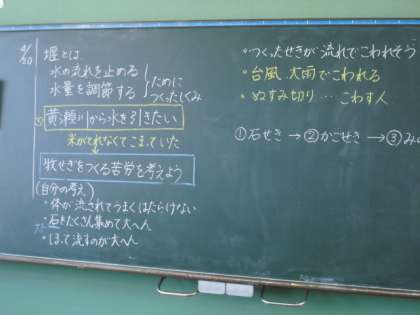 9/20
堰とは
水の流れを止める
水量を調節する
ために
つくったしくみ
黄瀬川から水を引きたい
米がとれなくてこまっていた
牧せきをつくる苦労を考えよう
(自分の考え)
・体が流されてうまくはたらけない
・石をたくさん集めて大へん
・ほって流すのが大へん
・つくったせきが流れでこわれそう
・台風 大雨でこわれる
・ぬすみ切り…こわす人
①石せき→②かごせき→③み